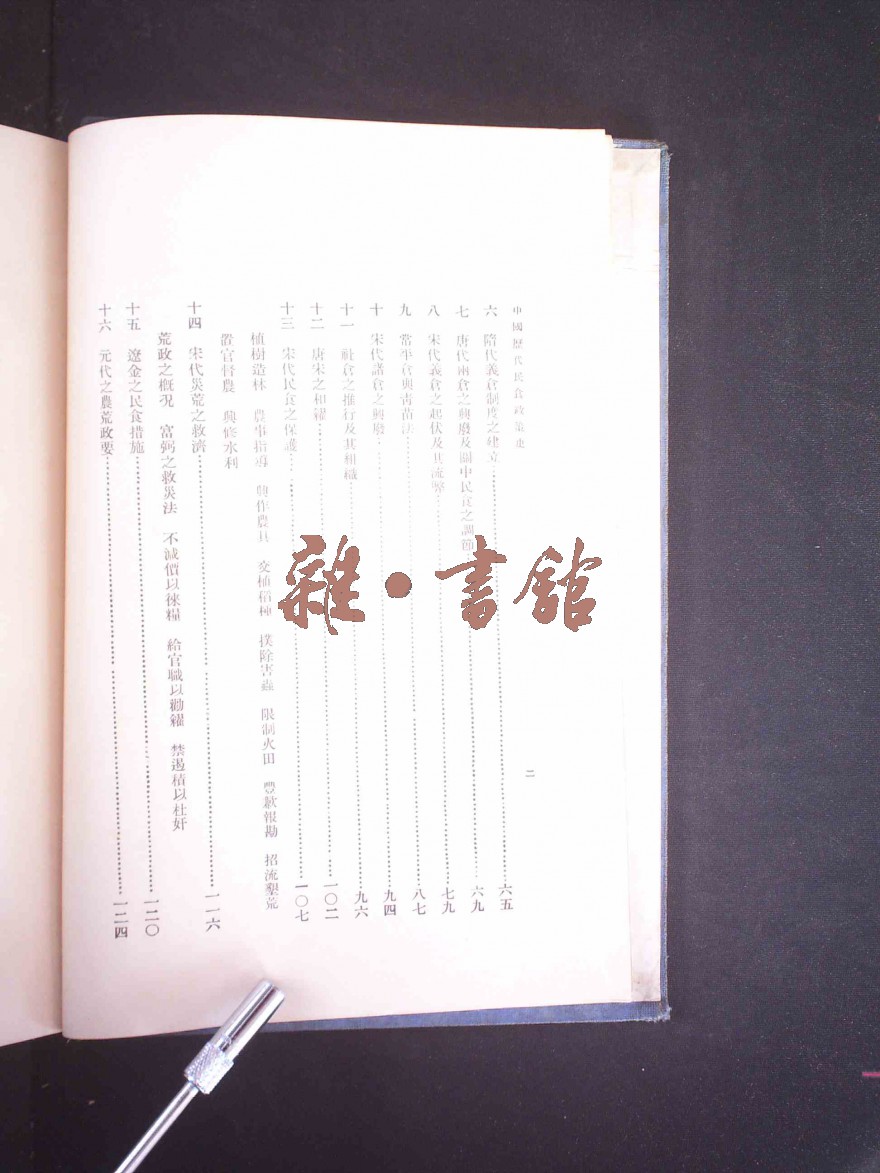 中國歷代民食政策史
二
六 隋代義倉制度之建立 六五
七 唐代兩倉之興廢及關中民食之調節 六九
八 宋代義倉之起伏及其流弊 七九
九 常平倉與青苗法 八七
十 宋代諸倉之興廢 九四
十一 社倉之推行及其組織 九六
十二 唐宋之和糴 一〇二
十三 宋代民食之保護 一〇七
植樹造林 農事指導 興作農具 交植稻種 撲除害蟲 限制火田 豐歉報勘 招流墾荒
置官督農 興修水利
十四 宋代災荒之救濟 一一六
荒政之概況 富弼之救災法 不減價以徠糧 給官職以勸糶 禁遏積以杜奸
十五 遼金之民食措施 一二〇
十六 元代之農荒政要 一二四
雜·書館